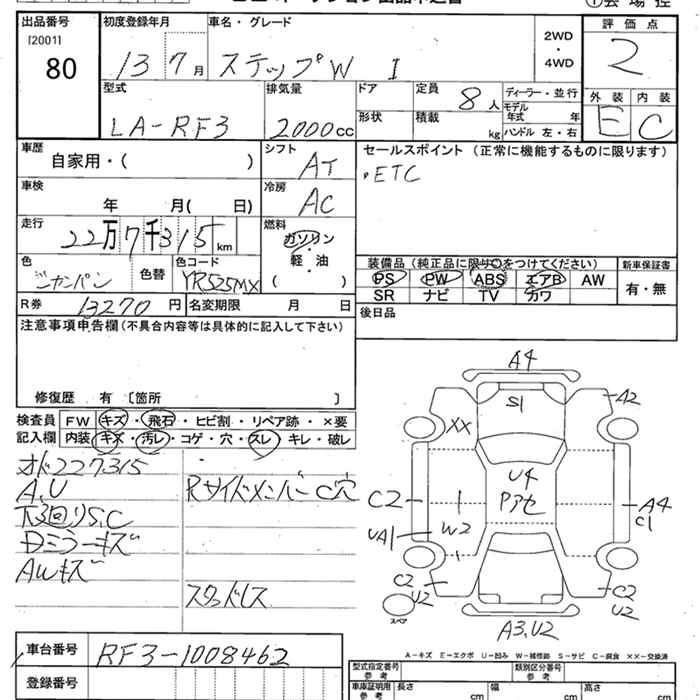 出品番号 初度登録年月 車名・グレード 評価点
[2001] 80 13 7月 ステップW I 2WD・4WD 2
型式 排気量 ドア 定員 8人 ディーラー・並行 外装 内装
LA-RF3 2000cc 形状 積載 kg モデル年式 年 E C
ハンドル 左・右
車歴 シフト セールスポイント (正常に機能するものに限ります)
自家用・( ) AT ・ETC
車検 冷房
年 月( 日) AC
走行 燃料
22万7千315km ガソリン
軽・油
色 色替 色コード ( ) 装備品 (純正品に限り○をつけてください) 新車保証書
YR525MX PS PW ABS エアB AW 有・無
R券 13270円 名変期限 月 日 SR ナビ TV カワ
注意事項申告欄(不具合内容等は具体的に記入して下さい) 後日品
修復歴 有 [箇所 ]
検査員 FW キズ・飛石・ヒビ割・リペア跡・×要
記入欄 内装 キズ・汚レ・コゲ・穴・スレ・キレ・破レ
227315
A,U RサイドメンバーC穴
下回りS,C
Dミラーキズ
AWキズ
スタッドレス
A4
S1 A2
XX
U4
Pアセ
C2 A4
C1
UA1 W2
C2 U2 C2 U2
スペア A3,U2
A-キズ E-エクボ U-凹み W-補修跡 S-サビ C-腐食 XX-交換済
車台番号 RF3-1008462
登録番号
型式指定番号 参考 類別区分番号 参考
車庫証明用 参考 長さ cm 幅 cm 高さ cm